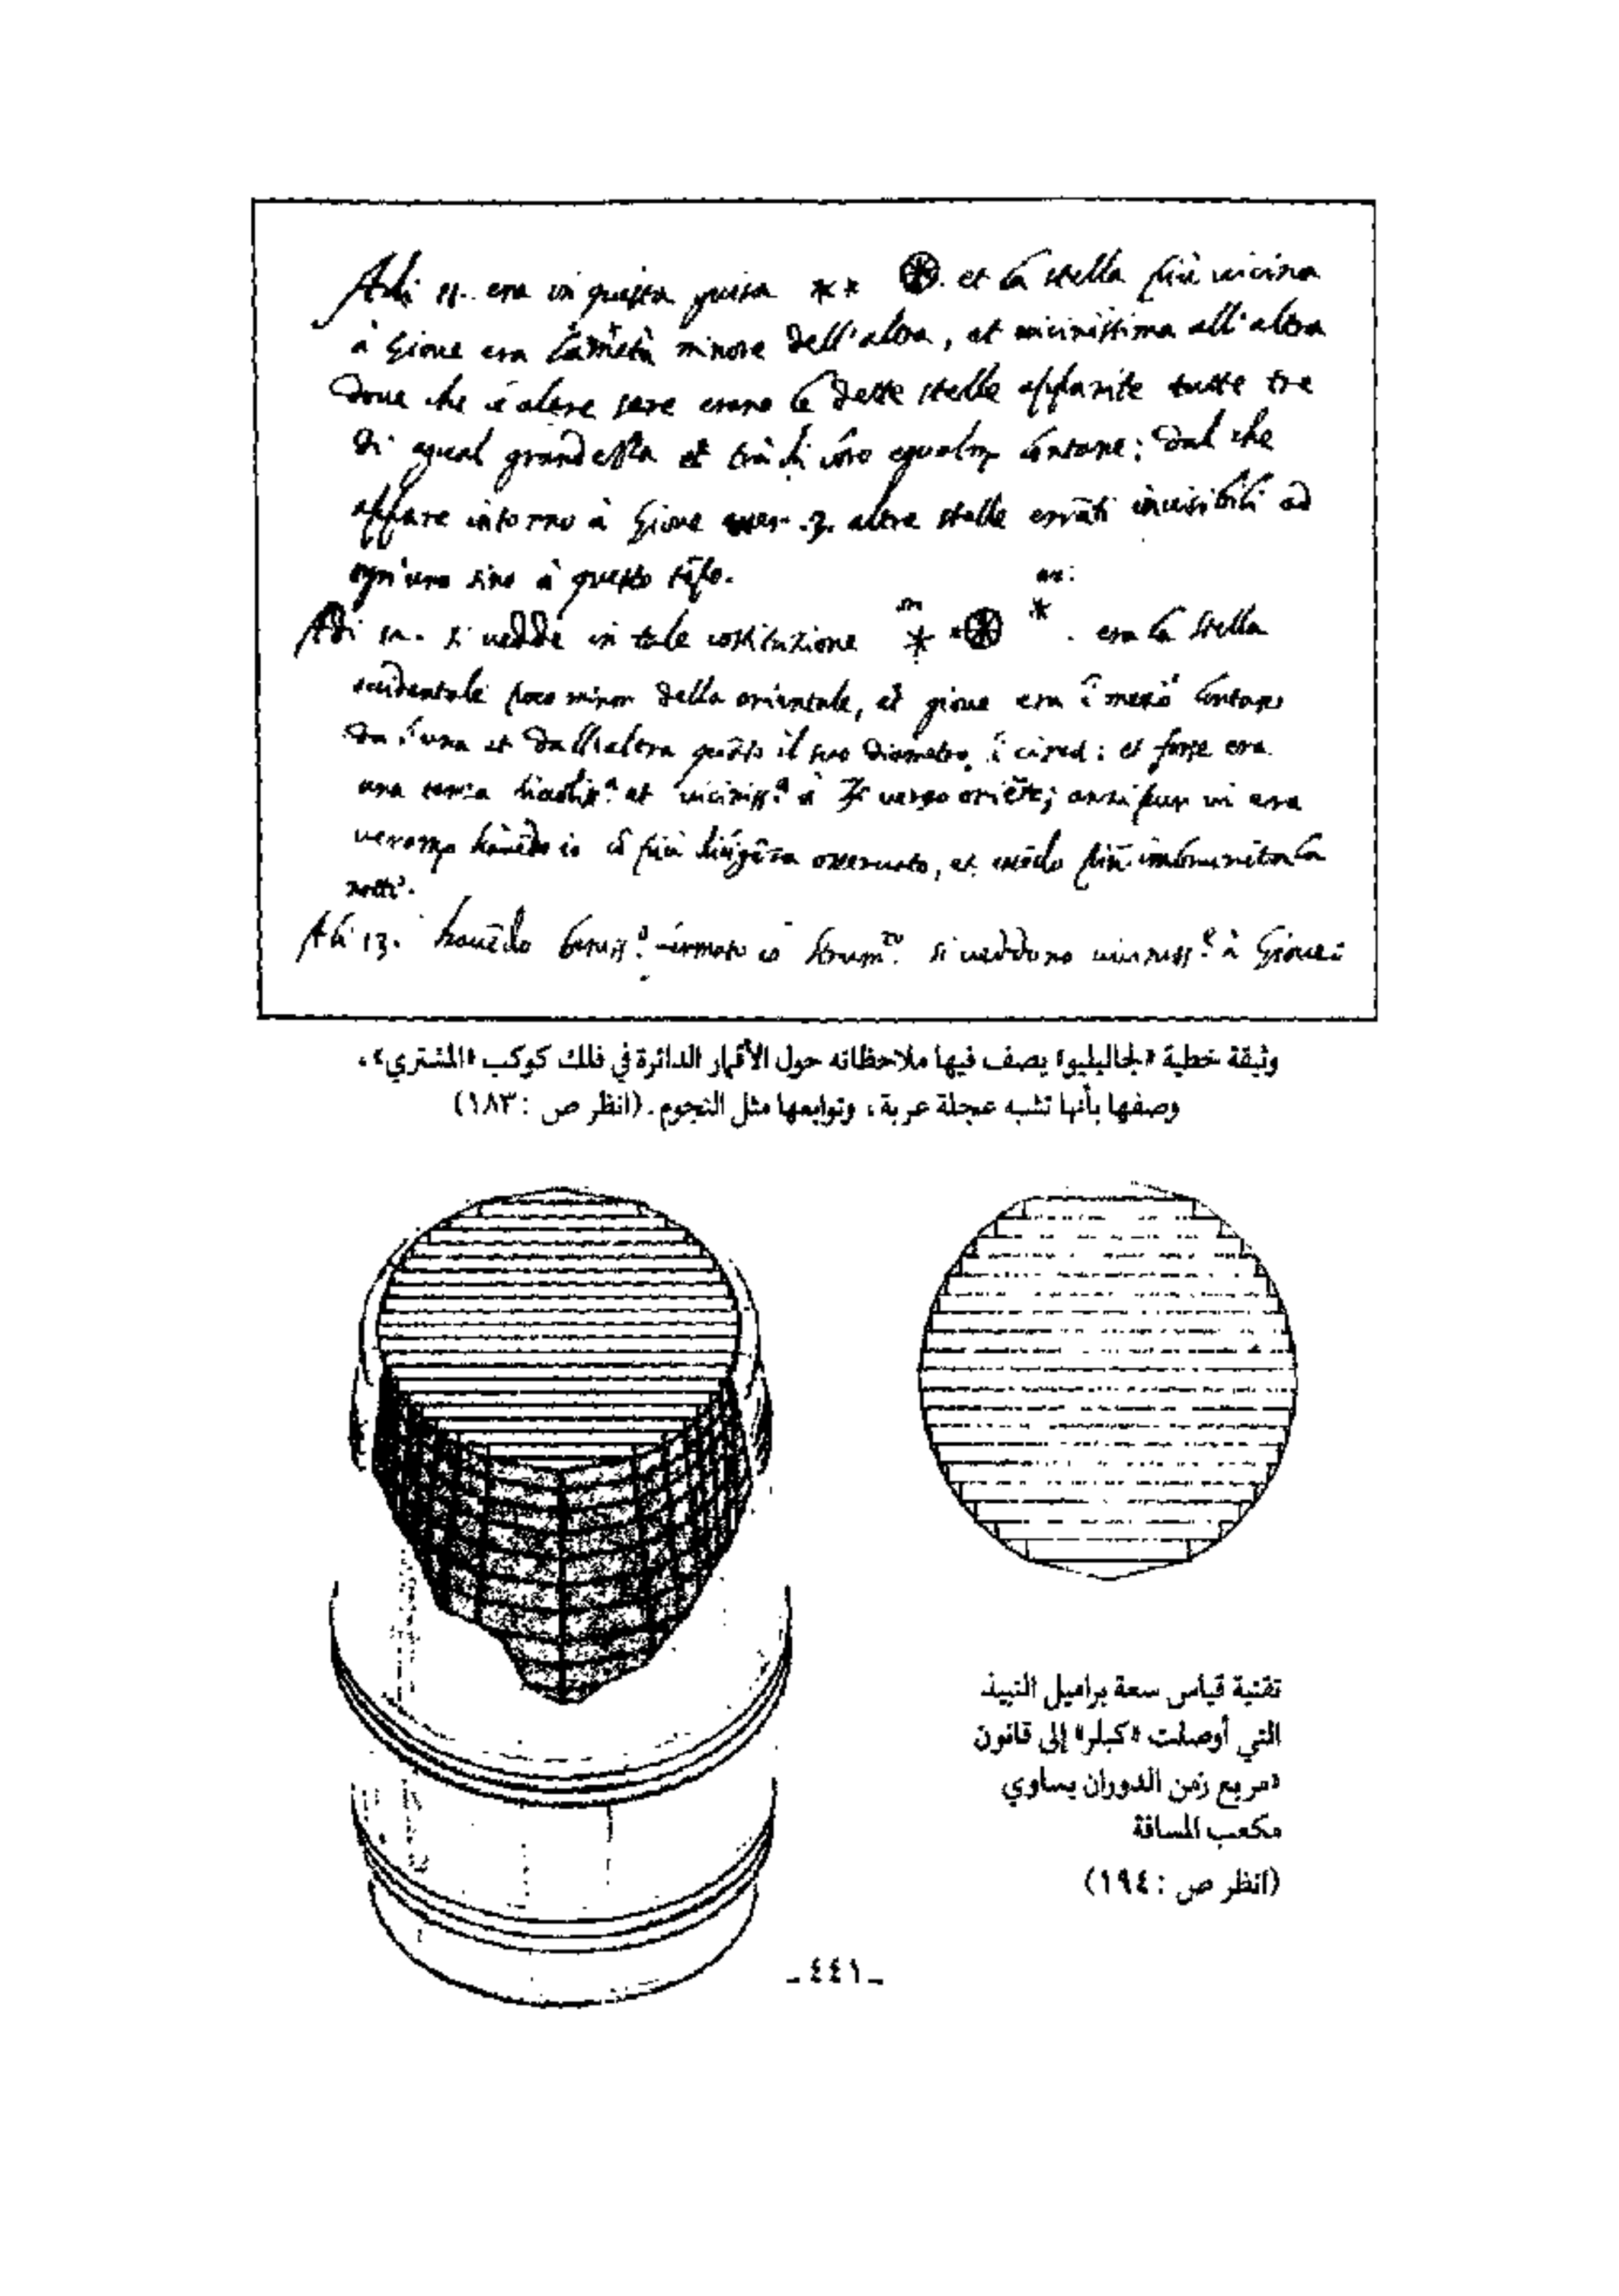 Adi 11. era in questa guisa ** . et la stella più vicina
à Giove era la metà minore dell'altra, et vicinissima all'altra
dove che le altre sere erano le dette stelle apparite tutte tre
di egual grandezza et trà di loro egualm lontane; dal che
appare intorno à Giove esser .3. altre stelle errāti invisibili ad
ogn'uno sino à questo tēpo.
Adi 12. si vedde in tale costituzione * * * . era la stella
occidentale poco minor della orientale, et giove era ī mezo lontano
da l'una et dall'altra quāto il suo diametro ī circa: et forse era
una terza et viciniss.a à ♃ verso oriēte; anzi pur vi era
veramē havēdo io cō più diligēza osservato, et più imbrunita la
notte.
Adi 13. havēdo beniss.o fermato lo strum.to si veddono viciniss.e à Giove
وثيقة خطية «لجاليليو» يصف فيها ملاحظاته حول الأقمار الدائرة في فلك كوكب «المشتري»،
وصفها بأنها تشبه عجلة عربة، وتوابعها مثل النجوم. (انظر ص : ١٨٣)
تقنية قياس سعة براميل النبيذ
التي أوصلت «كبلر» إلى قانون
«مربع زمن الدوران يساوي
مكعب المسافة
(انظر ص : ١٩٤)
ـ ٤٤١ ـ